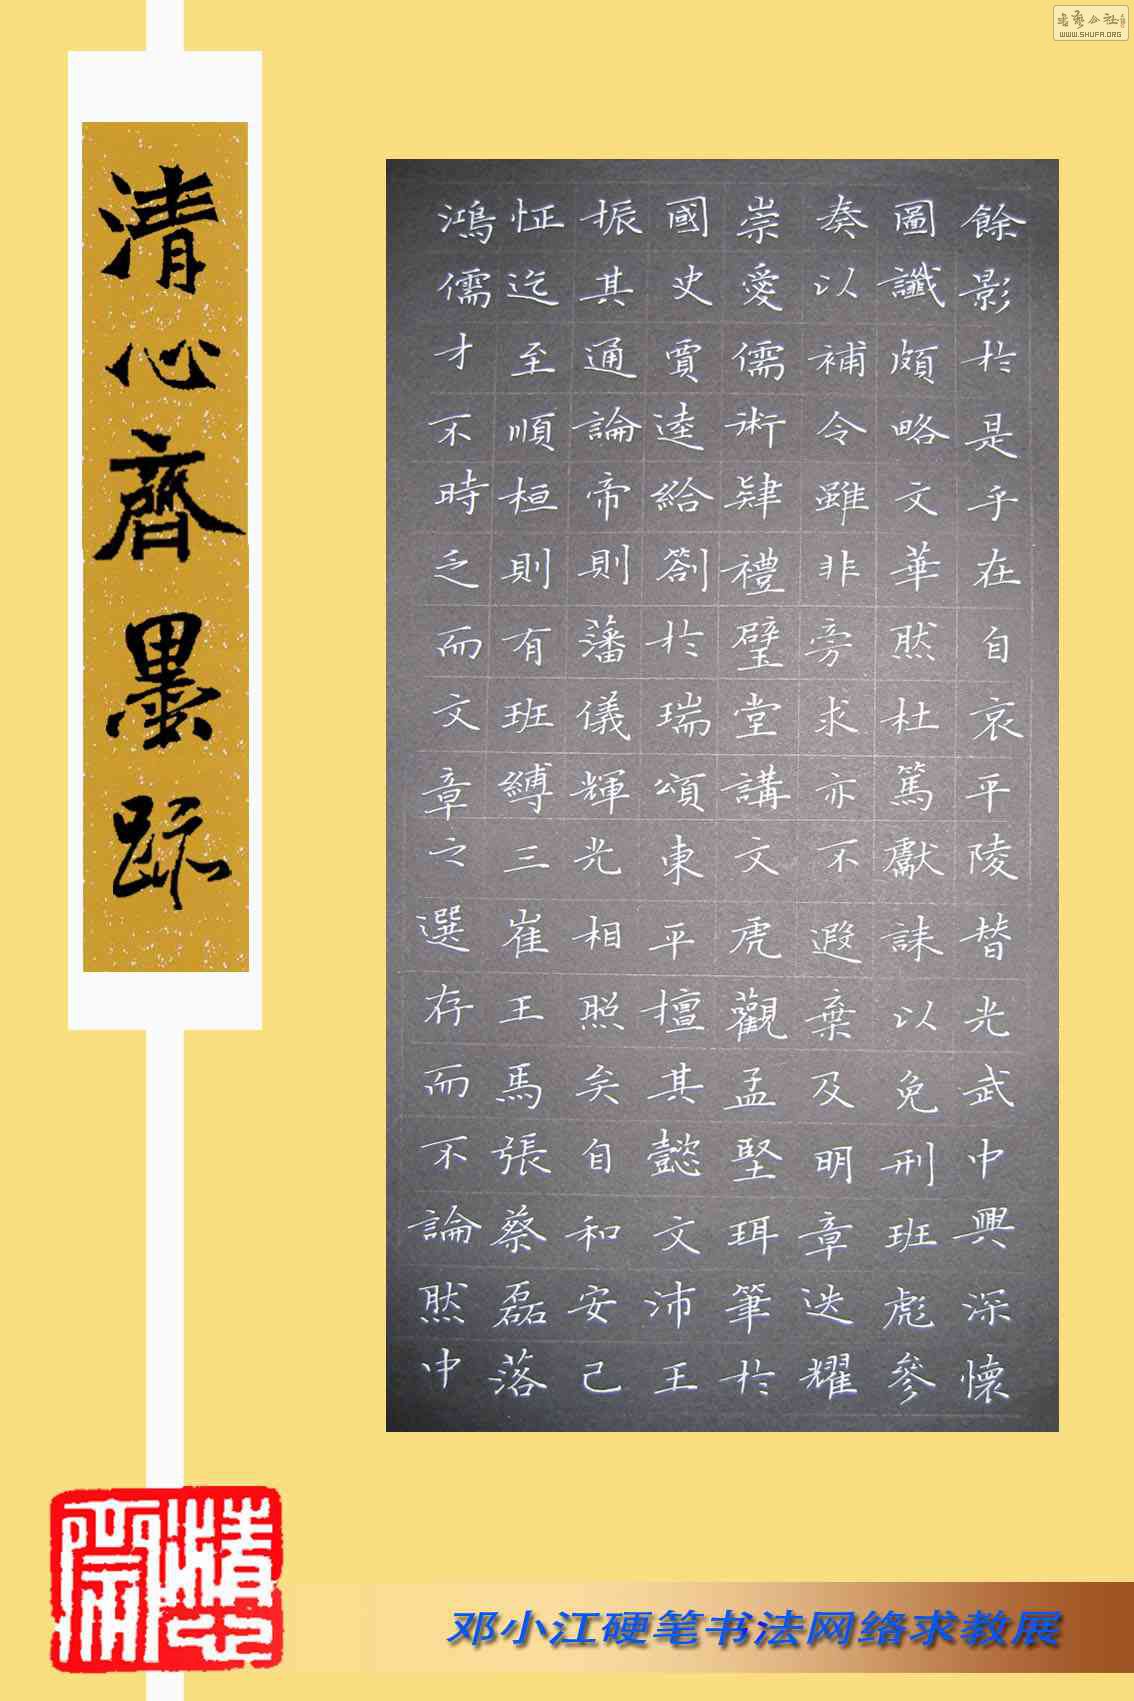 书艺公社
WWW.SHUFA.ORG
清心齊墨跡
餘影於是乎在自哀平陵替光武中興深懷
圖讖頗略文華然杜篤獻誄以免刑班彪參
奏以補令雖非旁求亦不遐棄及明章迭耀
崇愛儒術肄禮璧堂講文虎觀孟堅珥筆於
國史賈逵給劄於瑞頌東平擅其懿文沛王
振其通論帝則藩儀輝光相照矣自和安己
怔迄至順桓則有班縛三崔王馬張蔡磊落
鴻儒才不時乏而文章之選存而不論然中
清心齋
邓小江硬笔书法网络求教展